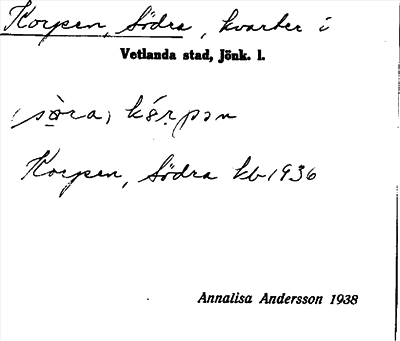 Korpen, Södra, kvarter i
Vetlanda stad, Jönk. l.
(sö̀ra) kór̥pən
Korpen, Södra kb 1936
Annalisa Andersson 1938